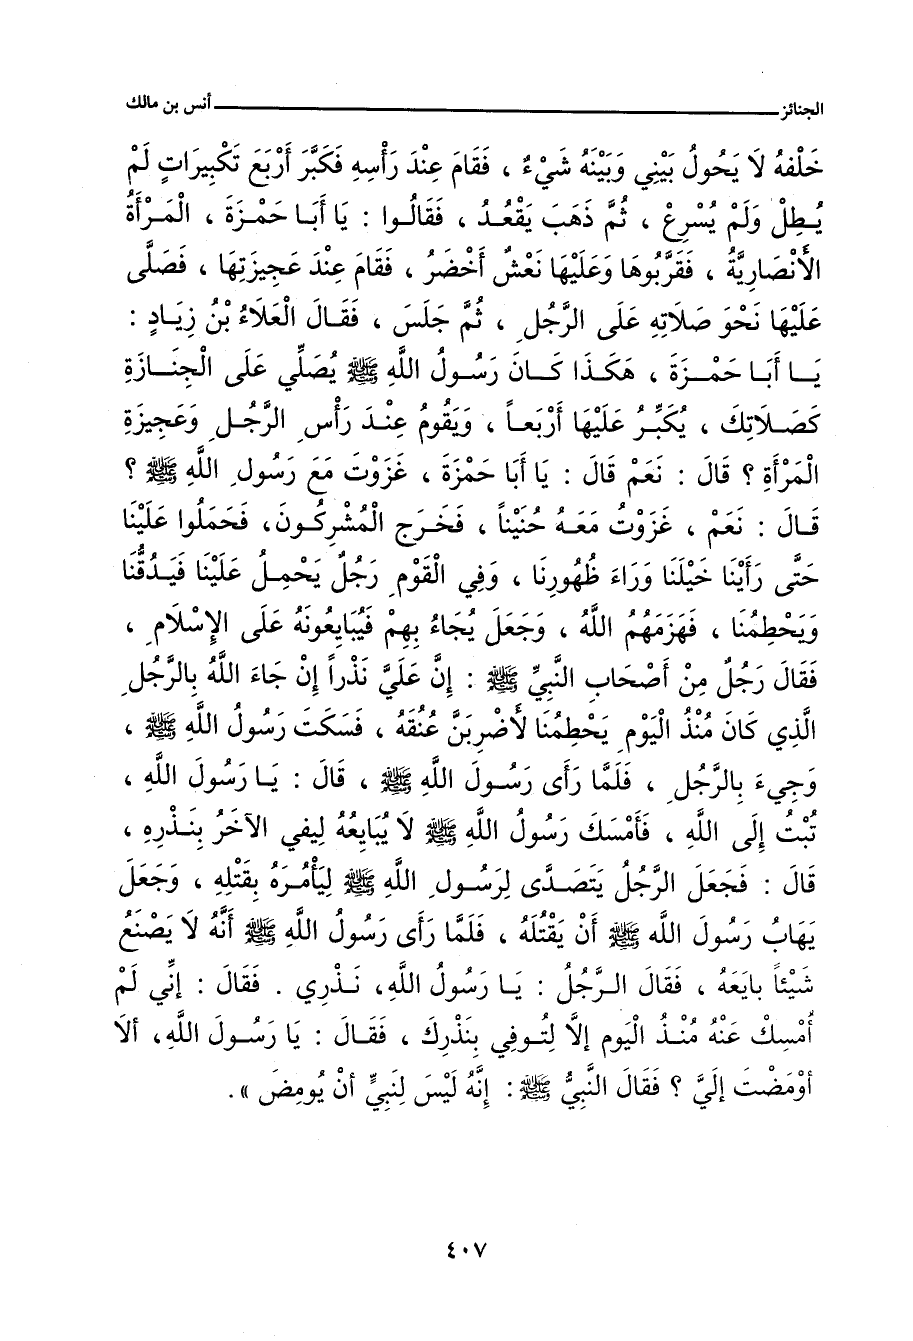 الجنائز أنس بن مالك
خَلْفَهُ لَا يَحُولُ بَيْنِي وَبَيْنَهُ شَيْءٌ ، فَقَامَ عِنْدَ رَأْسِهِ فَكَبَّرَ أَرْبَعَ تَكْبِيرَاتٍ لَمْ
يُطِلْ وَلَمْ يُسْرِعْ ، ثُمَّ ذَهَبَ يَقْعُدُ ، فَقَالُوا : يَا أَبَا حَمْزَةَ ، الْمَرْأَةُ
الأَنْصَارِيَّةُ ، فَقَرَّبُوهَا وَعَلَيْهَا نَعْشٌ أَخْضَرُ ، فَقَامَ عِنْدَ عَجِيزَتِهَا ، فَصَلَّى
عَلَيْهَا نَحْوَ صَلَاتِهِ عَلَى الرَّجُلِ ، ثُمَّ جَلَسَ ، فَقَالَ الْعَلَاءُ بْنُ زِيَادٍ :
يَا أَبَا حَمْزَةَ ، هَكَذَا كَانَ رَسُولُ اللَّهِ ﷺ يُصَلِّي عَلَى الْجِنَازَةِ
كَصَلَاتِكَ ، يُكَبِّرُ عَلَيْهَا أَرْبَعاً ، وَيَقُومُ عِنْدَ رَأْسِ الرَّجُلِ وَعَجِيزَةِ
الْمَرْأَةِ ؟ قَالَ : نَعَمْ قَالَ : يَا أَبَا حَمْزَةَ ، غَزَوْتَ مَعَ رَسُولِ اللَّهِ ﷺ ؟
قَالَ : نَعَمْ ، غَزَوْتُ مَعَهُ حُنَيْناً ، فَخَرَج الْمُشْرِكُونَ، فَحَمَلُوا عَلَيْنَا
حَتَّى رَأَيْنَا خَيْلَنَا وَرَاءَ ظُهُورِنَا ، وَفِي الْقَوْمِ رَجُلٌ يَحْمِلُ عَلَيْنَا فَيَدُقُّنَا
وَيَحْطِمُنَا ، فَهَزَمَهُمُ اللَّهُ ، وَجَعَلَ يُجَاءُ بِهِمْ فَيُبَايِعُونَهُ عَلَى الإِسْلَامِ ،
فَقَالَ رَجُلٌ مِنْ أَصْحَابِ النَّبِيِّ ﷺ : إِنَّ عَلَيَّ نَذْراً إِنْ جَاءَ اللَّهُ بِالرَّجُلِ
الَّذِي كَانَ مُنْذُ الْيَوْمِ يَحْطِمُنَا لَأَضْرِبَنَّ عُنُقَهُ ، فَسَكَتَ رَسُولُ اللَّهِ ﷺ ،
وَجِيءَ بِالرَّجُلِ ، فَلَمَّا رَأَى رَسُولَ اللَّهِ ﷺ ، قَالَ : يَا رَسُولَ اللَّهِ ،
تُبْتُ إِلَى اللَّهِ ، فَأَمْسَكَ رَسُولُ اللَّهِ ﷺ لَا يُبَايِعُهُ لِيفي الآخَرُ بِنَذْرِهِ ،
قَالَ : فَجَعَلَ الرَّجُلُ يَتَصَدَّى لِرَسُولِ اللَّهِ ﷺ لِيَأْمُرَهُ بِقَتْلِهِ ، وَجَعَلَ
يَهَابُ رَسُولَ اللَّه ﷺ أَنْ يَقْتُلَهُ ، فَلَمَّا رَأَى رَسُولُ اللَّهِ ﷺ أَنَّهُ لَا يَصْنَعُ
شَيْئاً بايَعَهُ ، فَقَالَ الرَّجُلُ : يَا رَسُولَ اللَّهِ، نَذْرِي . فَقَالَ : إِنِّي لَمْ
أُمْسِكْ عَنْهُ مُنْذُ الْيَوم إِلَّا لِتُوفِي بِنَذْرِكَ ، فَقَالَ : يَا رَسُولَ اللَّهِ، أَلَا
أَوْمَضْتَ إِلَيَّ ؟ فَقَالَ النَّبِيُّ ﷺ : إِنَّهُ لَيْسَ لِنَبِيٍّ أَنْ يُومِضَ » .
٤٠٧